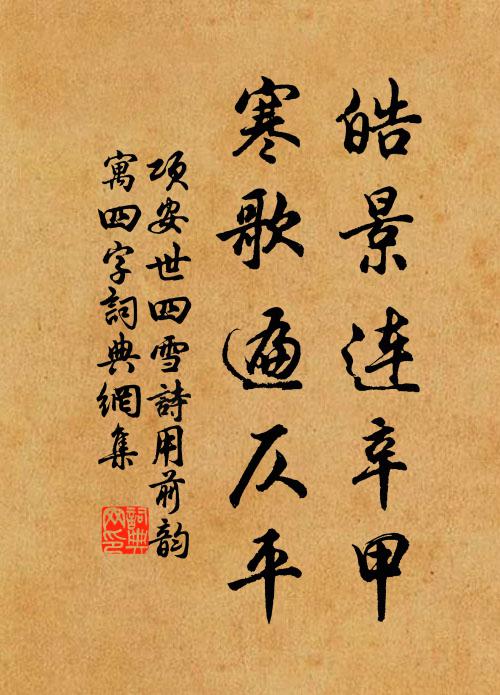 皓景连辛甲
寒歌遍仄平
项安世四雪詩用前韵
寓四字詞典網集
詞典網印